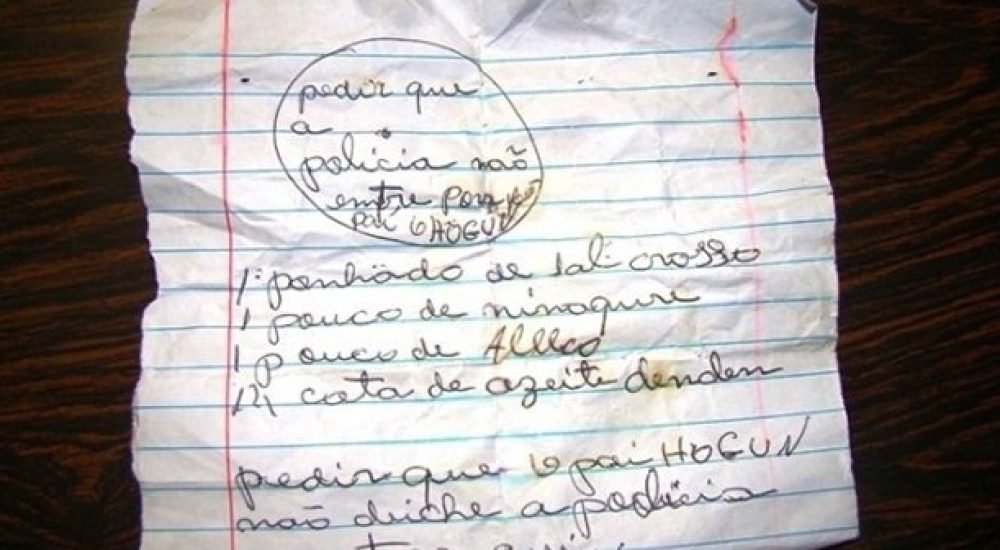 pedir que
a
policia não
entre por
pai 6 HOGUN
1 ponhado de sal crosso
1 pouco de ninagure
1 pouco de Allco
12 cota de azeite denden
pedir que 6 pai HOGUN
não deiche a policia